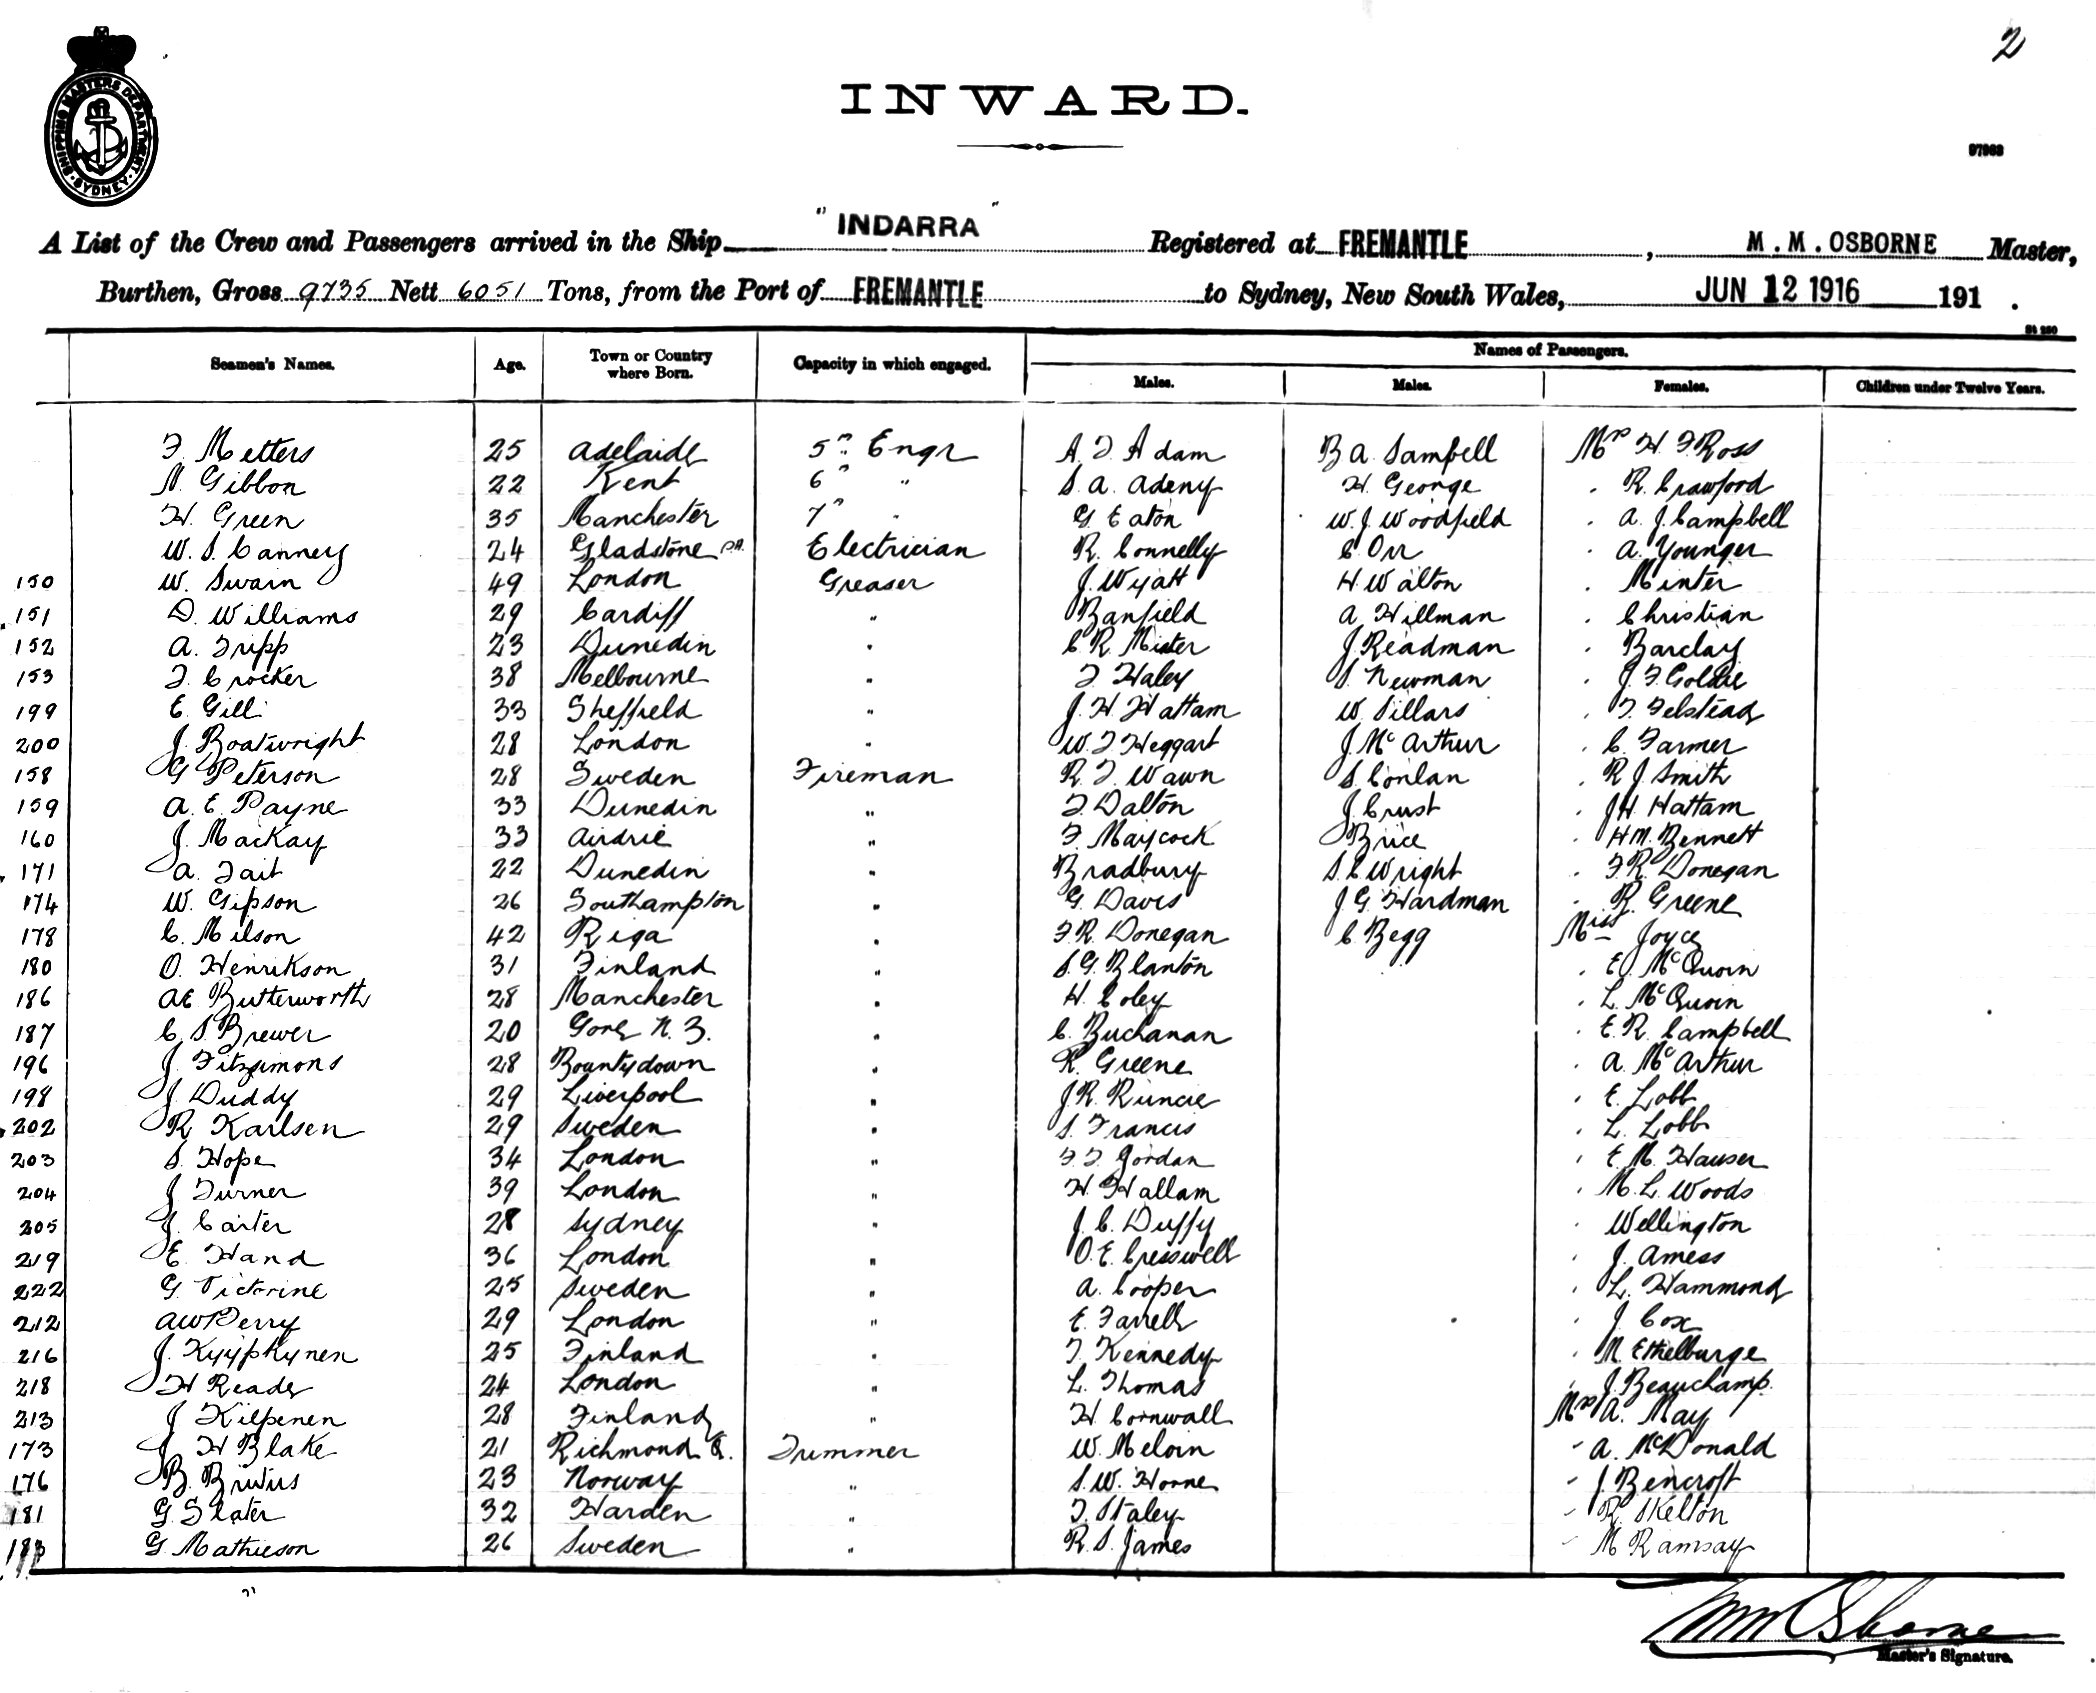 2
SHIPPING MASTERS DEPARTMENT
SYDNEY
INWARD.
97963
A List of the Crew and Passengers arrived in the Ship "INDARRA" Registered at FREMANTLE, M.M.OSBORNE Master,
Burthen, Gross 9735 Nett 6051 Tons, from the Port of FREMANTLE to Sydney, New South Wales, JUN 12 1916 191 .
St 260
Seamen's Names. Age. Town or Country where Born. Capacity in which engaged. Names of Passengers.
Males. Males. Females. Children under Twelve Years.
F Metters 25 Adelaide 5th Engr A. F Adam B A. Sambell Mrs H. F Ross
N. Gibbon 22 Kent 6th " S. A. Adeny H. George " R. Crawford
H. Green 35 Manchester 7th " G. Eaton W. J. Woodfield " A. J. Campbell
W. S. Canney 24 Gladstone S.A. Electrician R. Connelly C Orr " A. Younger
150 W. Swain 49 London Greaser J. Wyatt H Walton " Minter
151 D. Williams 29 Cardiff " Banfield A Hillman " Christian
152 A. Tripp 23 Dunedin " C R. Mister J. Readman " Barclay
153 F. Crocker 38 Melbourne " F Haley S. Newman " J. F Goldie
199 E. Gill 33 Sheffield " J. H. Hattam W. Sillars " F. Felstead
200 J. Boatwright 28 London " W. F Heggart J. McArthur " C. Farmer
158 G Peterson 28 Sweden Fireman R. F. Wawn S. Conlan " R J. Smith
159 A. E. Payne 33 Dunedin " F Dalton J. Crust " J. H. Hattam
160 J. MacKay 33 Airdrie " F. Maycock Brice " H. M. Bennett
171 A. Tait 22 Dunedin " Bradbury S. C Wright " F. R. Donegan
174 W. Gipson 26 Southampton " G. Davis J G. Hardman " R. Greene
178 C. Milson 42 Riga " F. R. Donegan C Begg Miss Joyce
180 O. Henrikson 31 Finland " S. G. Blanton " E. McQuoin
186 A E Butterworth 28 Manchester " H. Coley " L. McQuoin
187 C. S. Brewer 20 Gore N. Z. " C. Buchanan " E. R. Campbell
196 J. Fitzsimons 28 Bountydown " R. Greene " A. McArthur
198 J Duddy 29 Liverpool " J. R. Runcie " E. Lobb
202 R Karlsen 29 Sweden " S. Francis " L. Lobb
203 S. Hope 34 London " F. F Jordan " E. M. Hauser
204 J Turner 39 London " H Hallam " M. L Woods
205 J. Carter 28 Sydney " J. C. Duffy " Wellington
219 E. Hand 36 London " O. E. Cresswell " J. Amess
222 G. Victorine 25 Sweden " A. Cooper " L. Hammond
212 A W Perry 29 London " E. Farrell " J Cox
216 J. Kyyphynen 25 Finland " F. Kennedy " M. Ethelburge
218 H Reader 24 London " L. Thomas " J. Beauchamp.
213 J Kilpenen 28 Finland " H Cornwall Mrs A. May
173 J H Blake 21 Richmond Trimmer W. Melvin " A. McDonald
176 B. Brutus 23 Norway " S. W. Horne " J. Bencroft
181 G Slater 32 Harden " F. Staley " R Skelton
G. Mathieson 26 Sweden " R. S. James " M Ramsay
MM Osborne
Master's Signature.